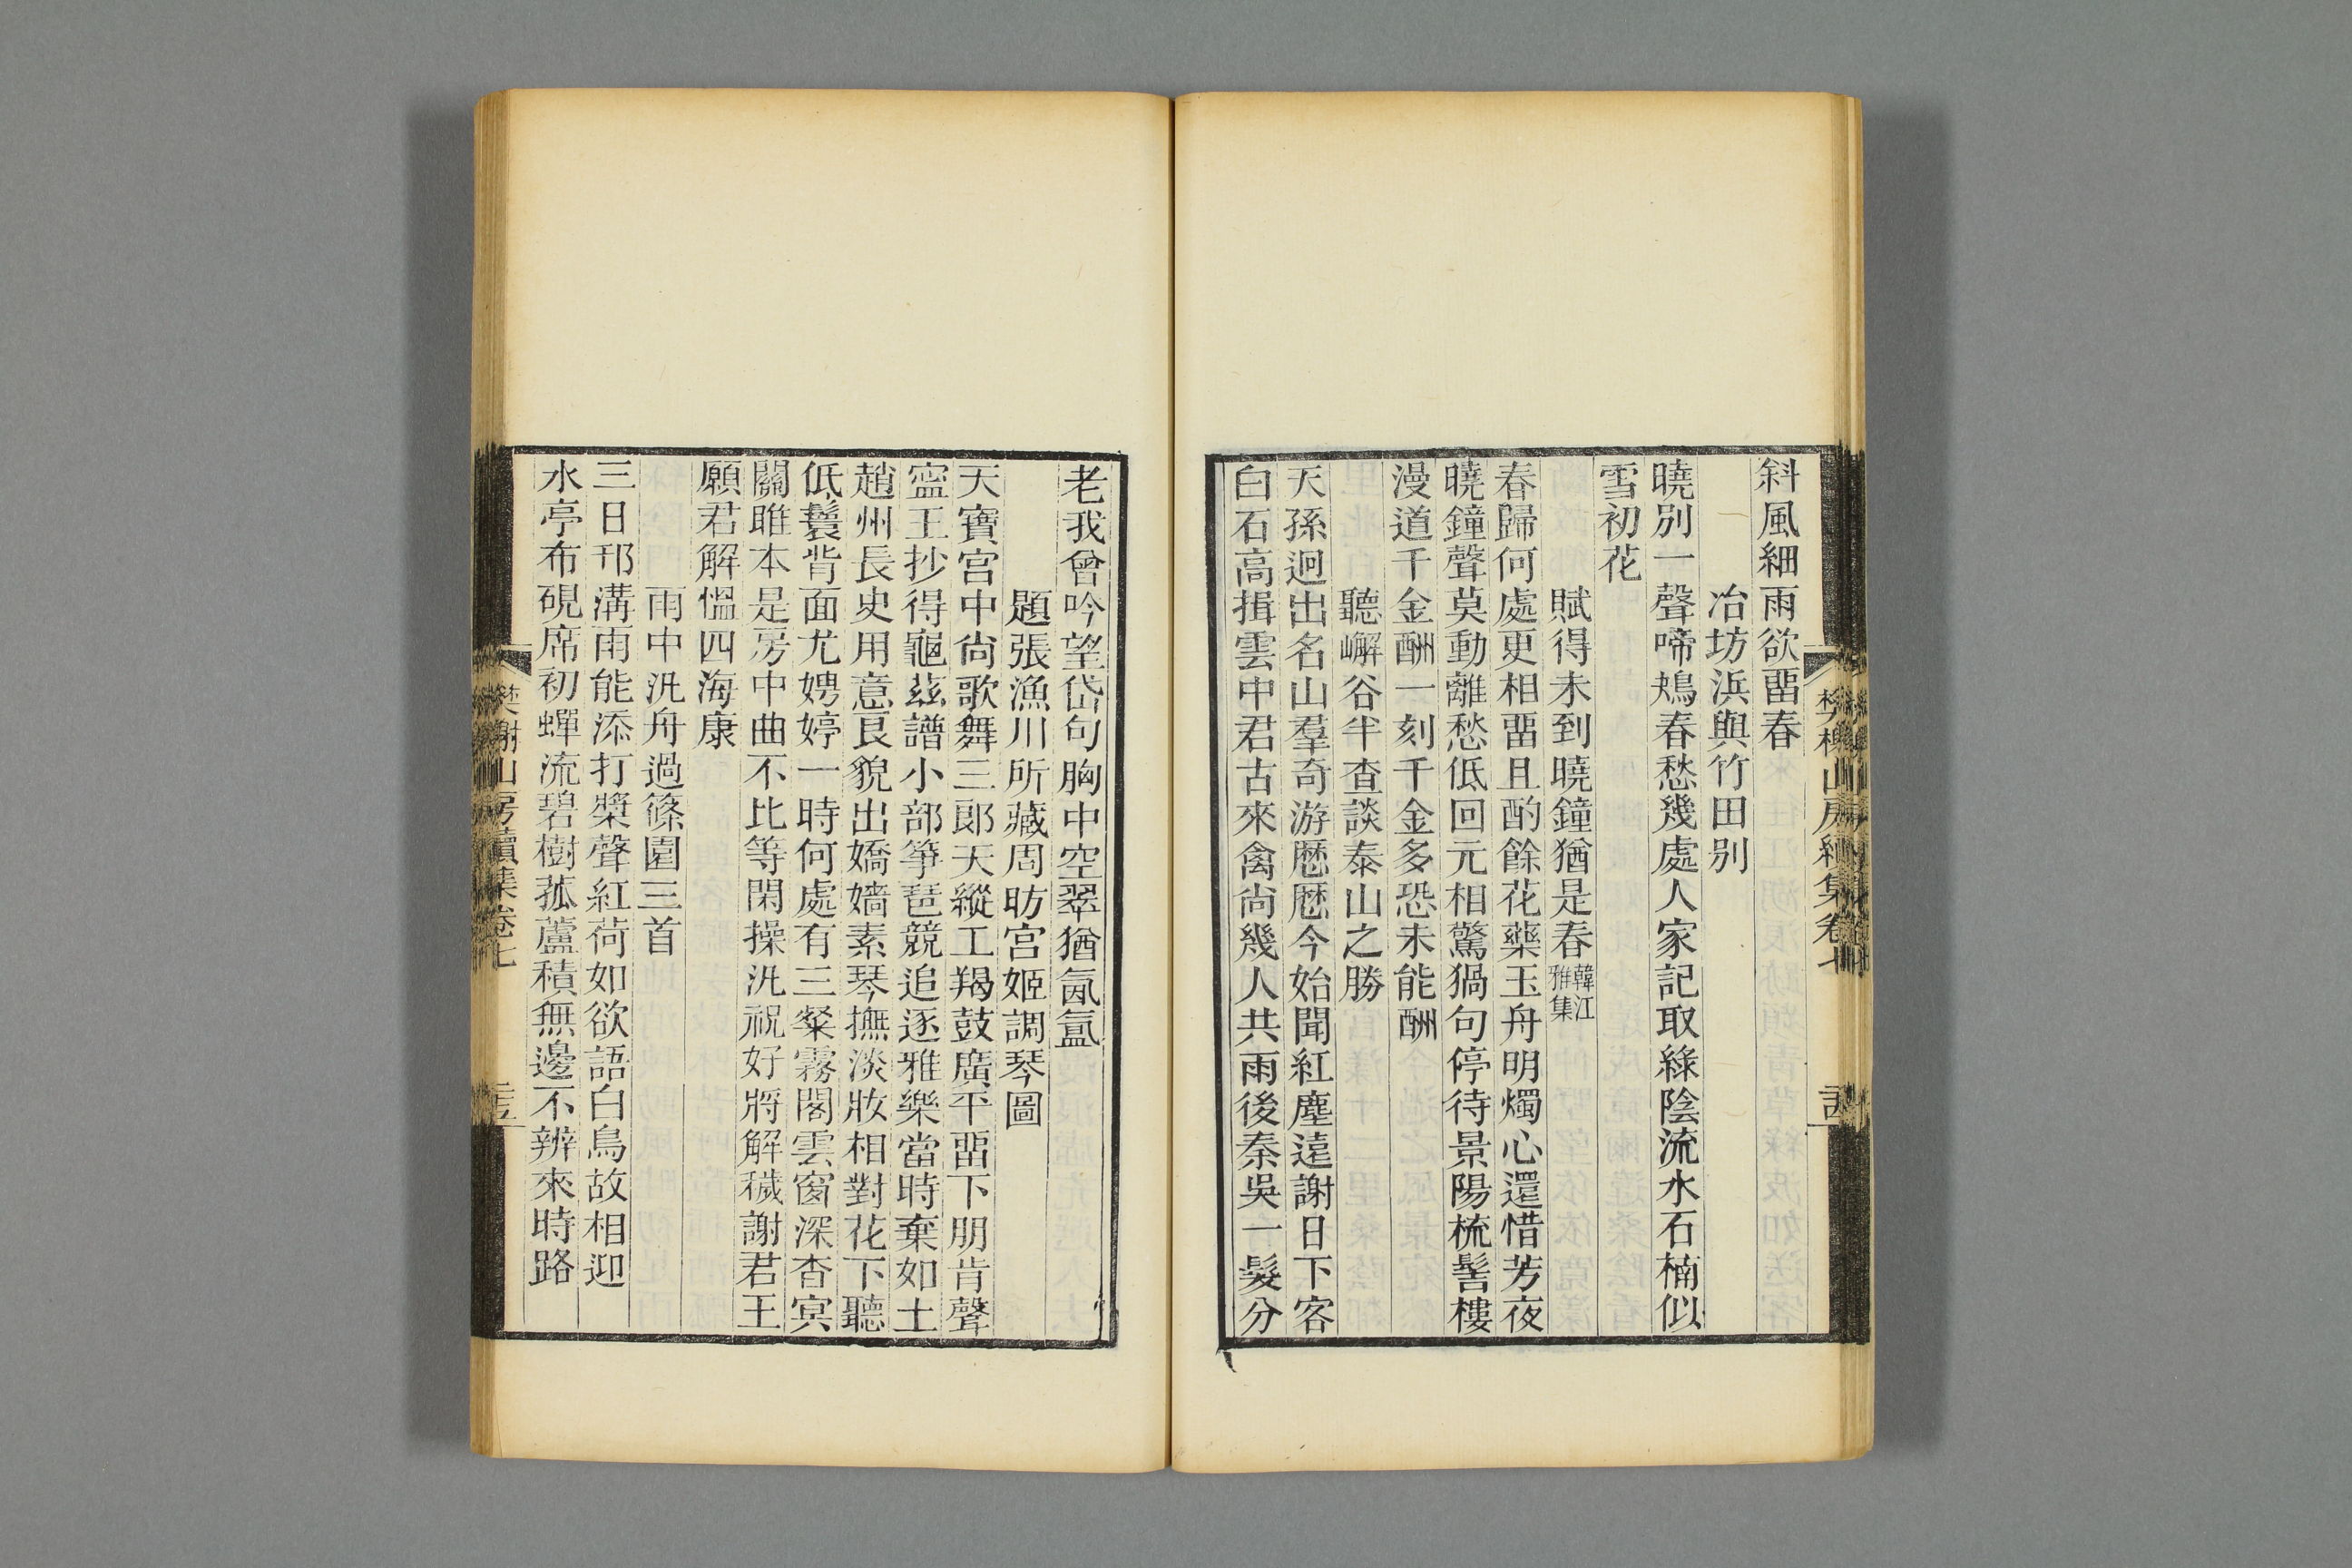 斜風細雨欲畱春
冶坊浜與竹田别
曉別一聲啼鴂春愁幾處人家記取綠陰流水石楠似
雪初花
賦得未到曉鐘猶是春韓江雅集
春歸何處更相畱且酌餘花藥玉舟明燭心還惜芳夜
曉鐘聲莫動離愁低回元相驚猧句停待景陽梳髻樓
漫道千金酬一刻千金多恐未能酬
聽嶰谷半查談泰山之勝
天孫迥出名山羣奇游歷歷今始聞紅塵遠謝日下客
白石高揖雲中君古來禽尚幾人共雨後秦吳一髮分
樊榭山房續集卷七
老我曾吟望岱句胸中空翠猶氤氳
題張漁川所藏周昉宮姬調琴圖
天寶宮中尚歌舞三郎天縱工羯鼓廣平畱下朋肯聲
寧王抄得龜茲譜小部箏琶競追逐雅樂當時棄如土
趙州長史用意良貌出嬌嬙素琴撫淡妝相對花下聽
低鬟背面尤娉婷一時何處有三粲霧閣雲窗深杳冥
關雎本是房中曲不比等閑操汎祝好將解穢謝君王
願君解慍四海康
雨中汎舟過篠園三首
三日邗溝雨能添打槳聲紅荷如欲語白鳥故相迎
水亭布硯席初蟬流碧樹菰蘆積無邊不辨來時路
樊榭山房續集卷七